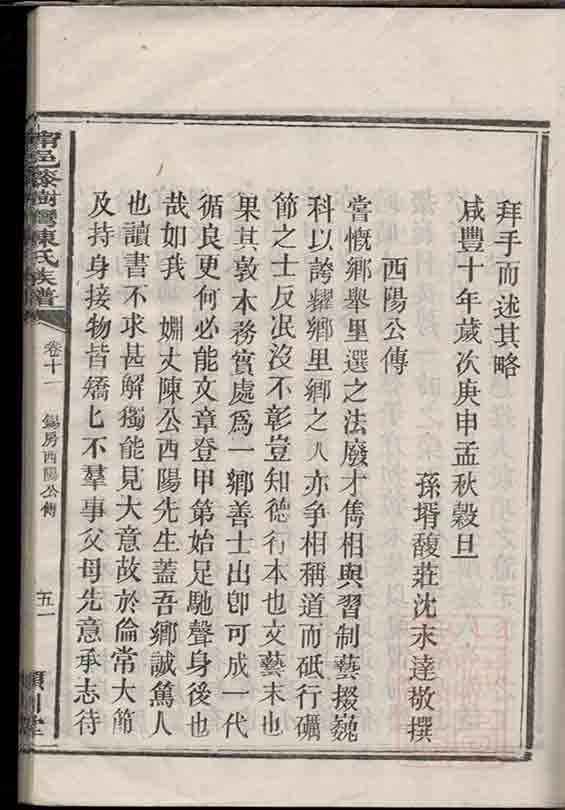 拜手而述其略
咸豐十年歲次庚申孟秋穀旦
孫壻馥莊沈永達敬撰
酉陽公傳
嘗慨鄉舉里選之法廢才雋相與習制藝掇巍
科以誇耀鄉里鄉之人亦爭相稱道而砥行礪
節之士反泯沒不彰豈知德行本也文藝末也
果其敦本務實處為一鄉善士出卽可成一代
循良更何必能文章登甲第始足馳聲身後也
哉如我 姻丈陳公酉陽先生蓋吾鄉誠篤人
也讀書不求甚解獨能見大意故於倫常大節
及持身接物皆矯匕不羣事父母先意承志待
陳氏族譜
卷十一
錫房酉陽公傳
五一